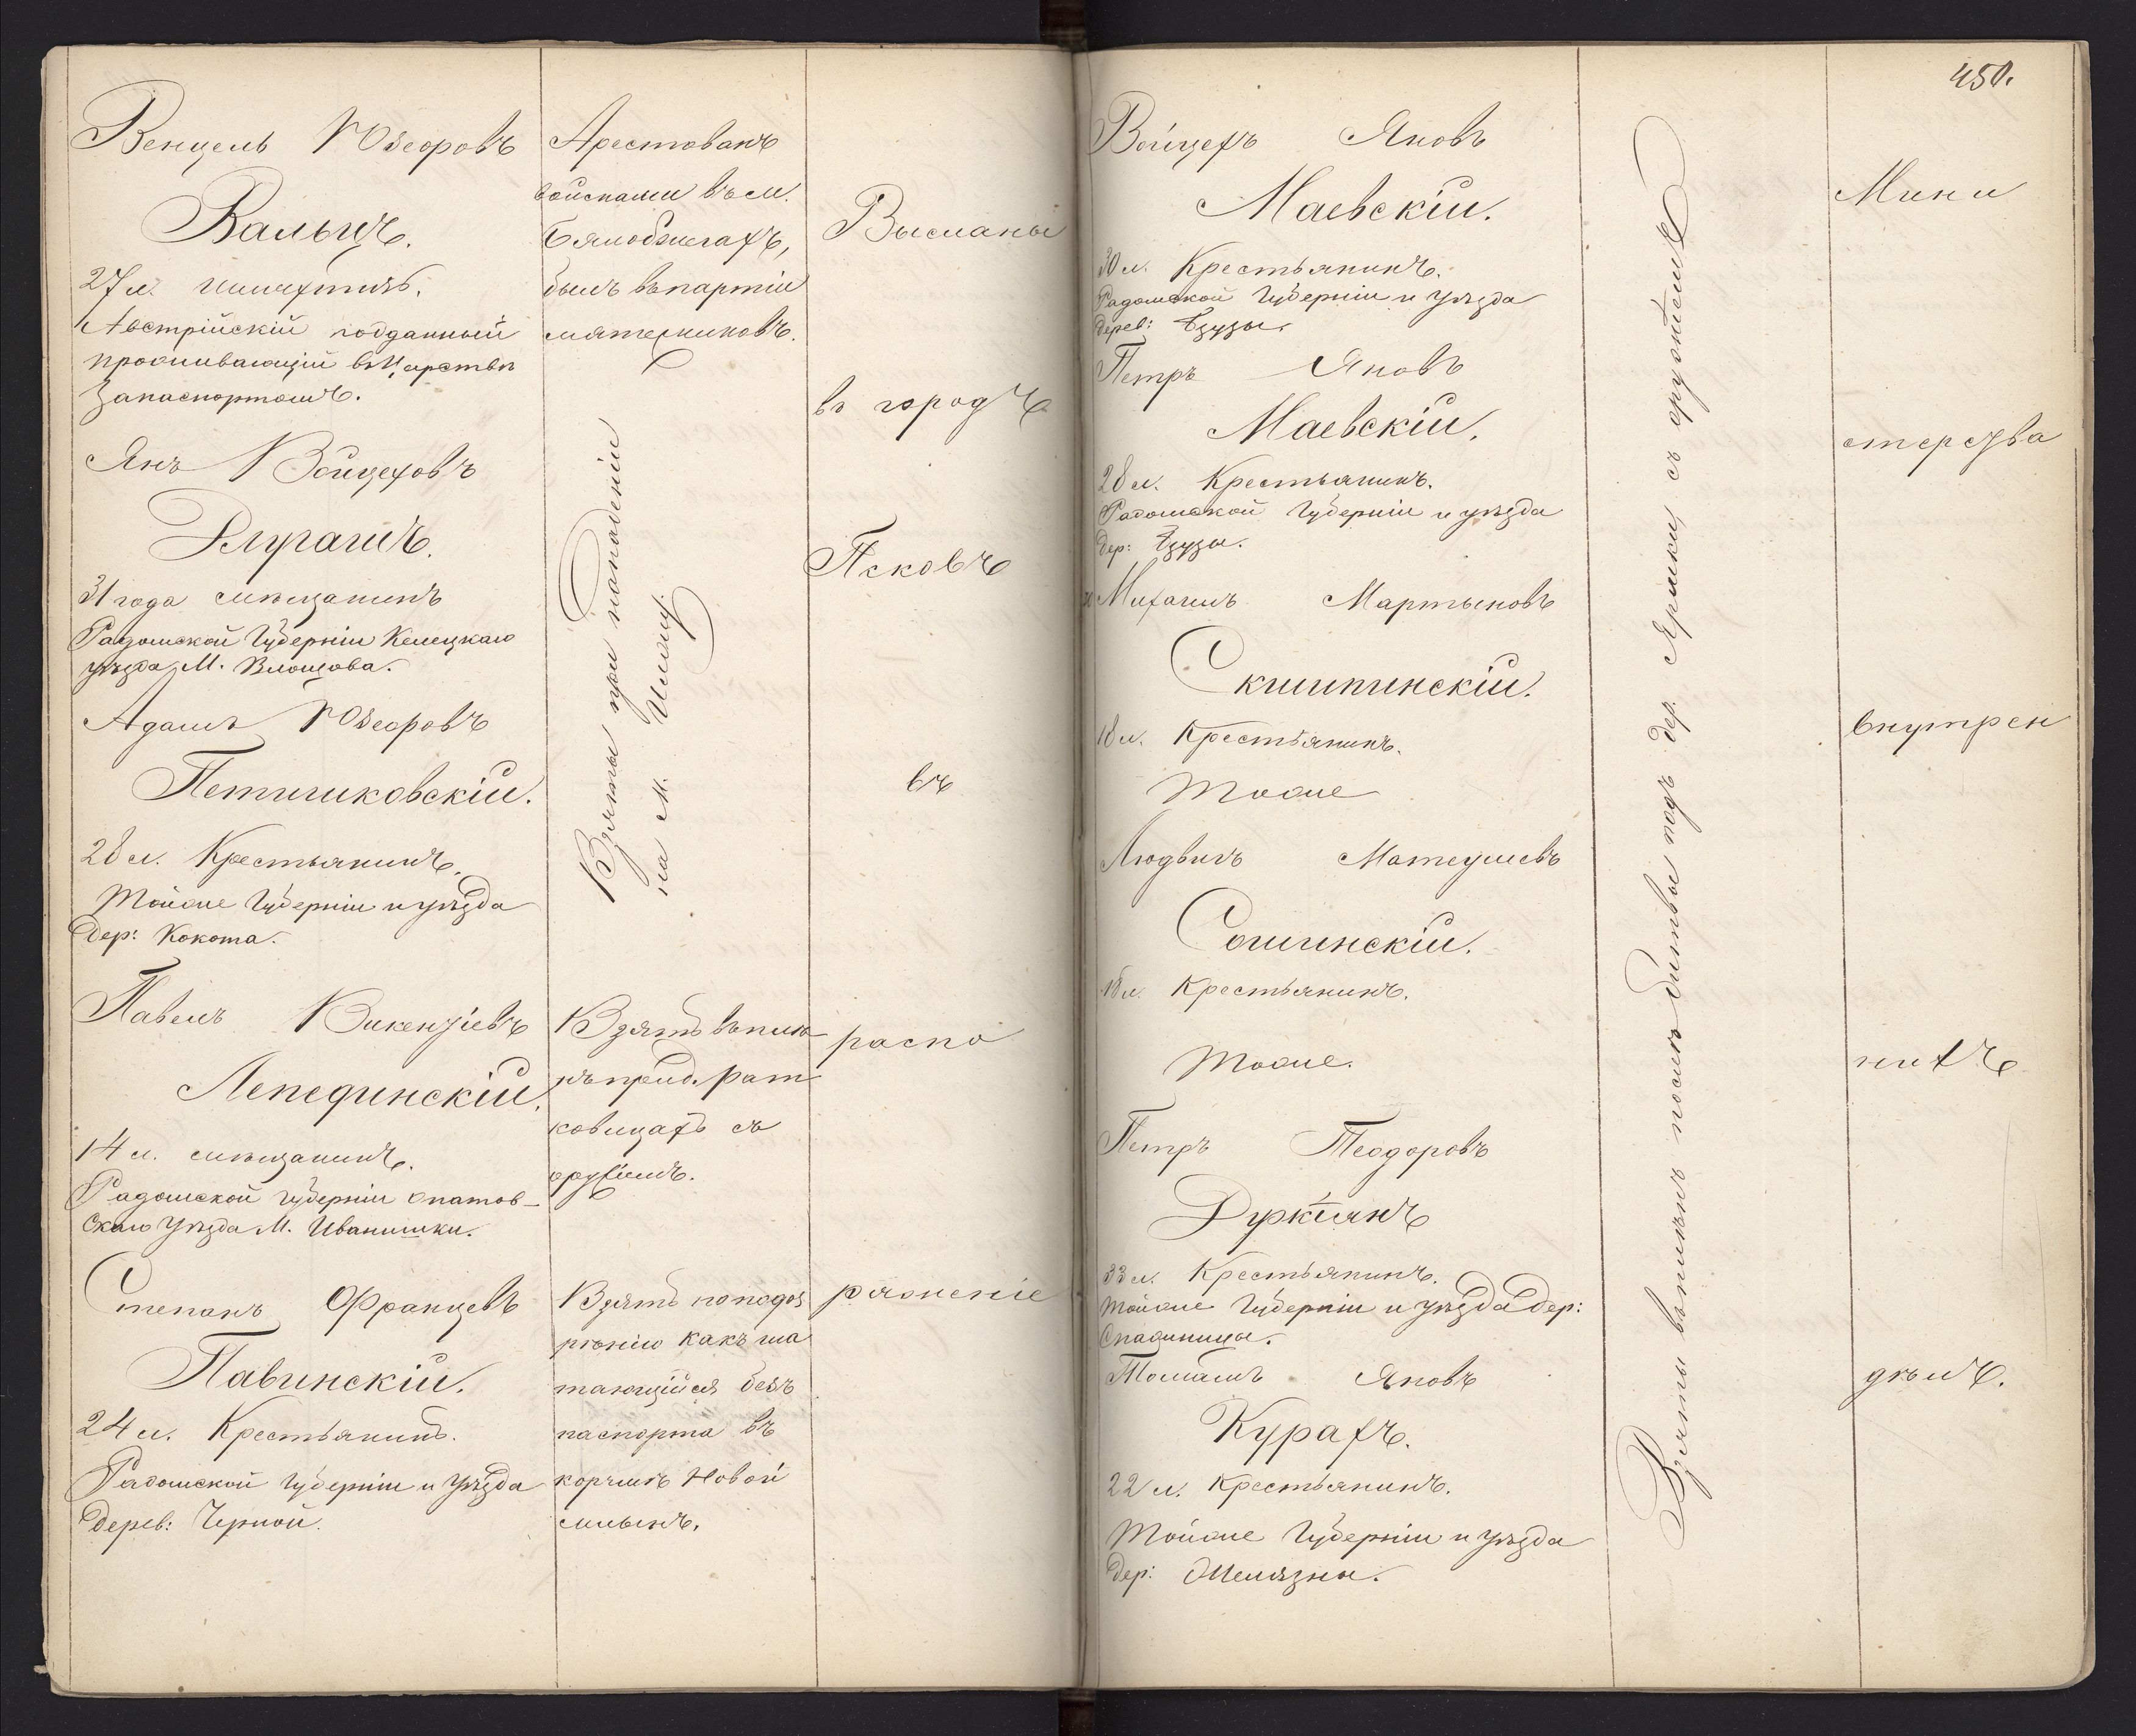 450.
Венцель Юзефовъ
Вальцъ.
27 л. шляхтичъ.
Австрійскій подданный
проживающій въ Царствѣ
за паспортомъ.
Янъ Войцеховъ
Длугашъ.
31 года мѣщанинъ
Радомской Губерніи Келецкаго
уѣзда М. Влощова.
Адамъ Юзефовъ
28 л. Крестьянинъ.
Тойже Губерніи и уѣзда
дер: Кокота.
Павелъ Викентіевъ
14 л. мѣщанинъ.
Радомской Губерніи Опатов-
скаго Уѣзда М. Иванишки.
Степанъ Францевъ
Павинскій.
24 л. Крестьянинъ.
Радомской Губерніи и Уѣзда
Дерев: Черной.
Арестованъ
войсками въ м.
Бялобжегахъ,
былъ въ партіи
мятежниковъ.
Взяты при нападеніи
на М.
Взятъ въ плѣ
нъ при д. Рат
ковицахъ съ
оружіемъ.
Взятъ по подоз
рѣнію какъ ша
тающійся безъ
паспорта въ
корчмѣ Новой
млынъ.
Высланы
въ городъ
Псковъ
въ
распо
ряженіе
Войцехъ Яновъ
Маевскій.
30 л. Крестьянинъ.
Радомской Губерніи и уѣзда
Дерев: Бзузы.
Петръ Яновъ
Маевскій.
28 л. Крестьянинъ.
Радомской Губерніи и уѣзда
Дер: Бзузы.
Михаилъ Мартыновъ
18 л. Крестьянинъ.
Тоже
Людвигъ Матеушевъ
18 л. Крестьянинъ.
Тоже.
Петръ Теодоровъ
Дуркіянъ
33 л. Крестьянинъ.
Тойже Губерніи и уѣзда дер:
Томашъ Яновъ
Курахъ.
22 л. Крестьянинъ.
Тойже Губерніи и уѣзда
Дер: Желязны.
Взяты въ плѣнъ послѣ битвы подъ дер. съ оружіемъ
Мини
стерства
внутрен
нихъ
дѣлъ.